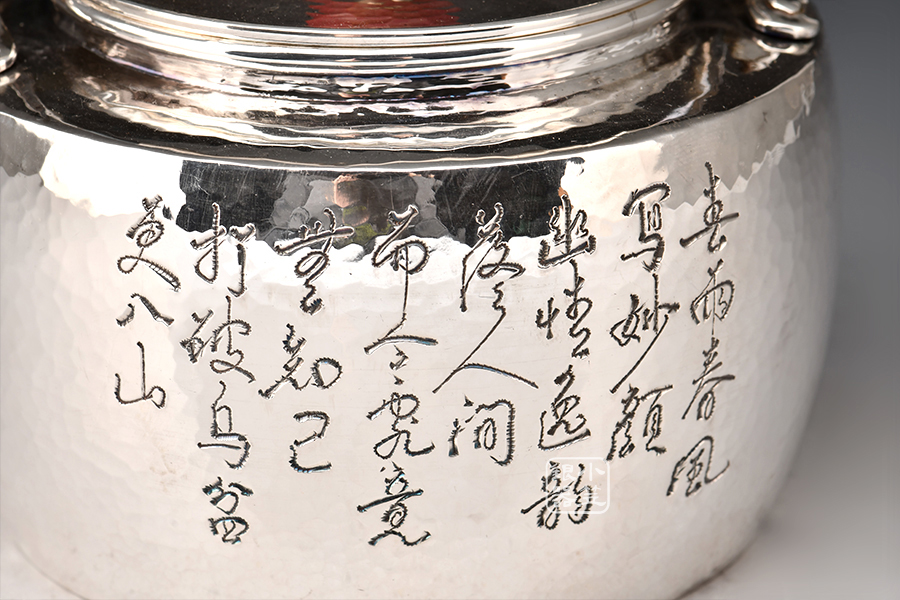 春雨春風
写妙顏
幽情逸韻
落人間
而今究竟
無知己
打破烏盆
更入山